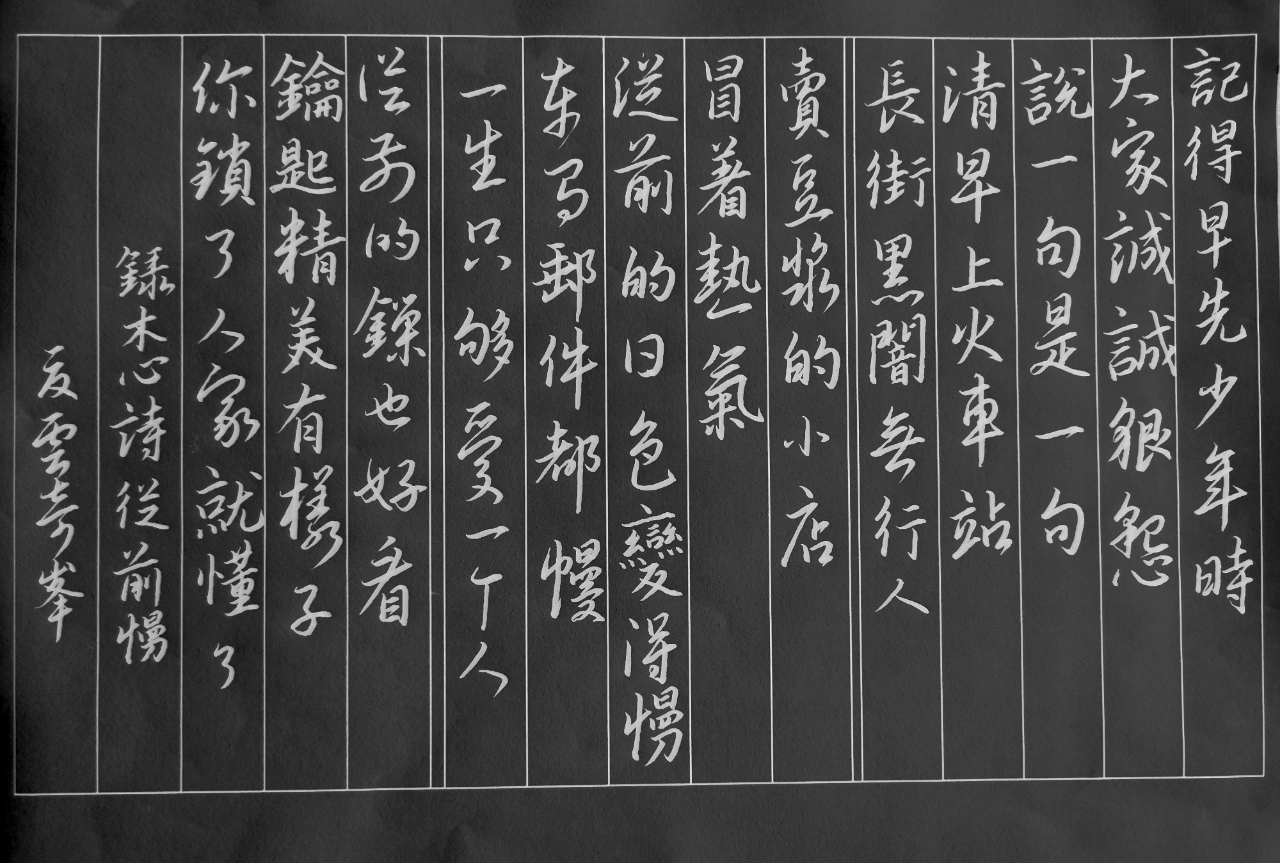 記得早先少年時
大家誠誠懇懇
說一句是一句
清早上火車站
長街黑闇無行人
賣豆漿的小店
冒着熱氣
從前的日色變得慢
车马郵件都慢
一生只够愛一个人
從前的鎖也好看
鑰匙精美有樣子
你鎖了人家就懂了
錄木心詩從前慢
雲奇峯